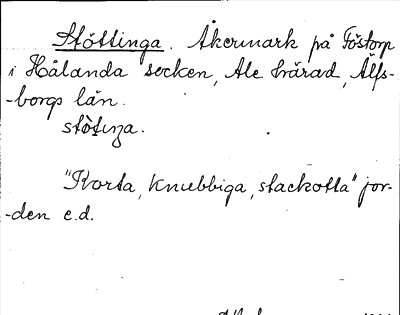 Stöttinga. Åkermark på Föstorp
i Hålanda socken, Ale härad, Älfs-
-borgs län.
stö̀tıŋa.
"Korta, knubbiga, stackotta" jor-
-den e.d.